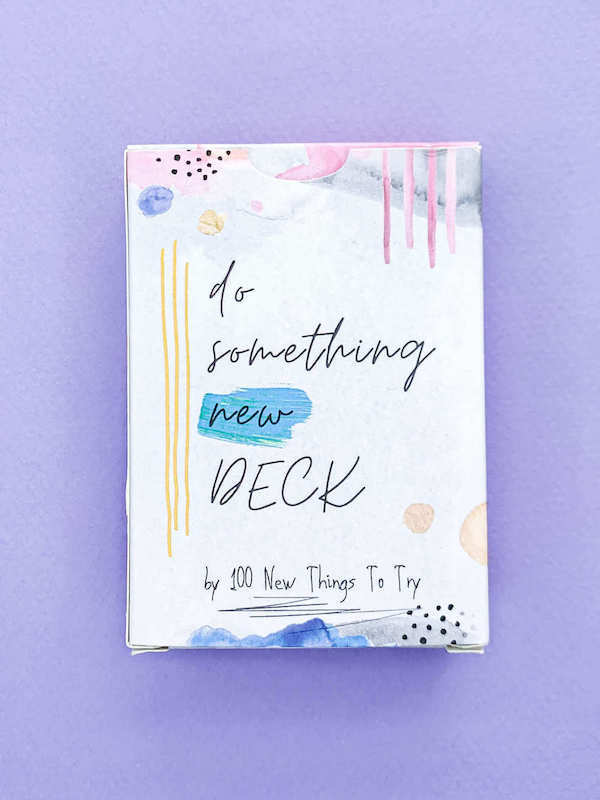 do
something
new
DECK
by 100 New Things To Try